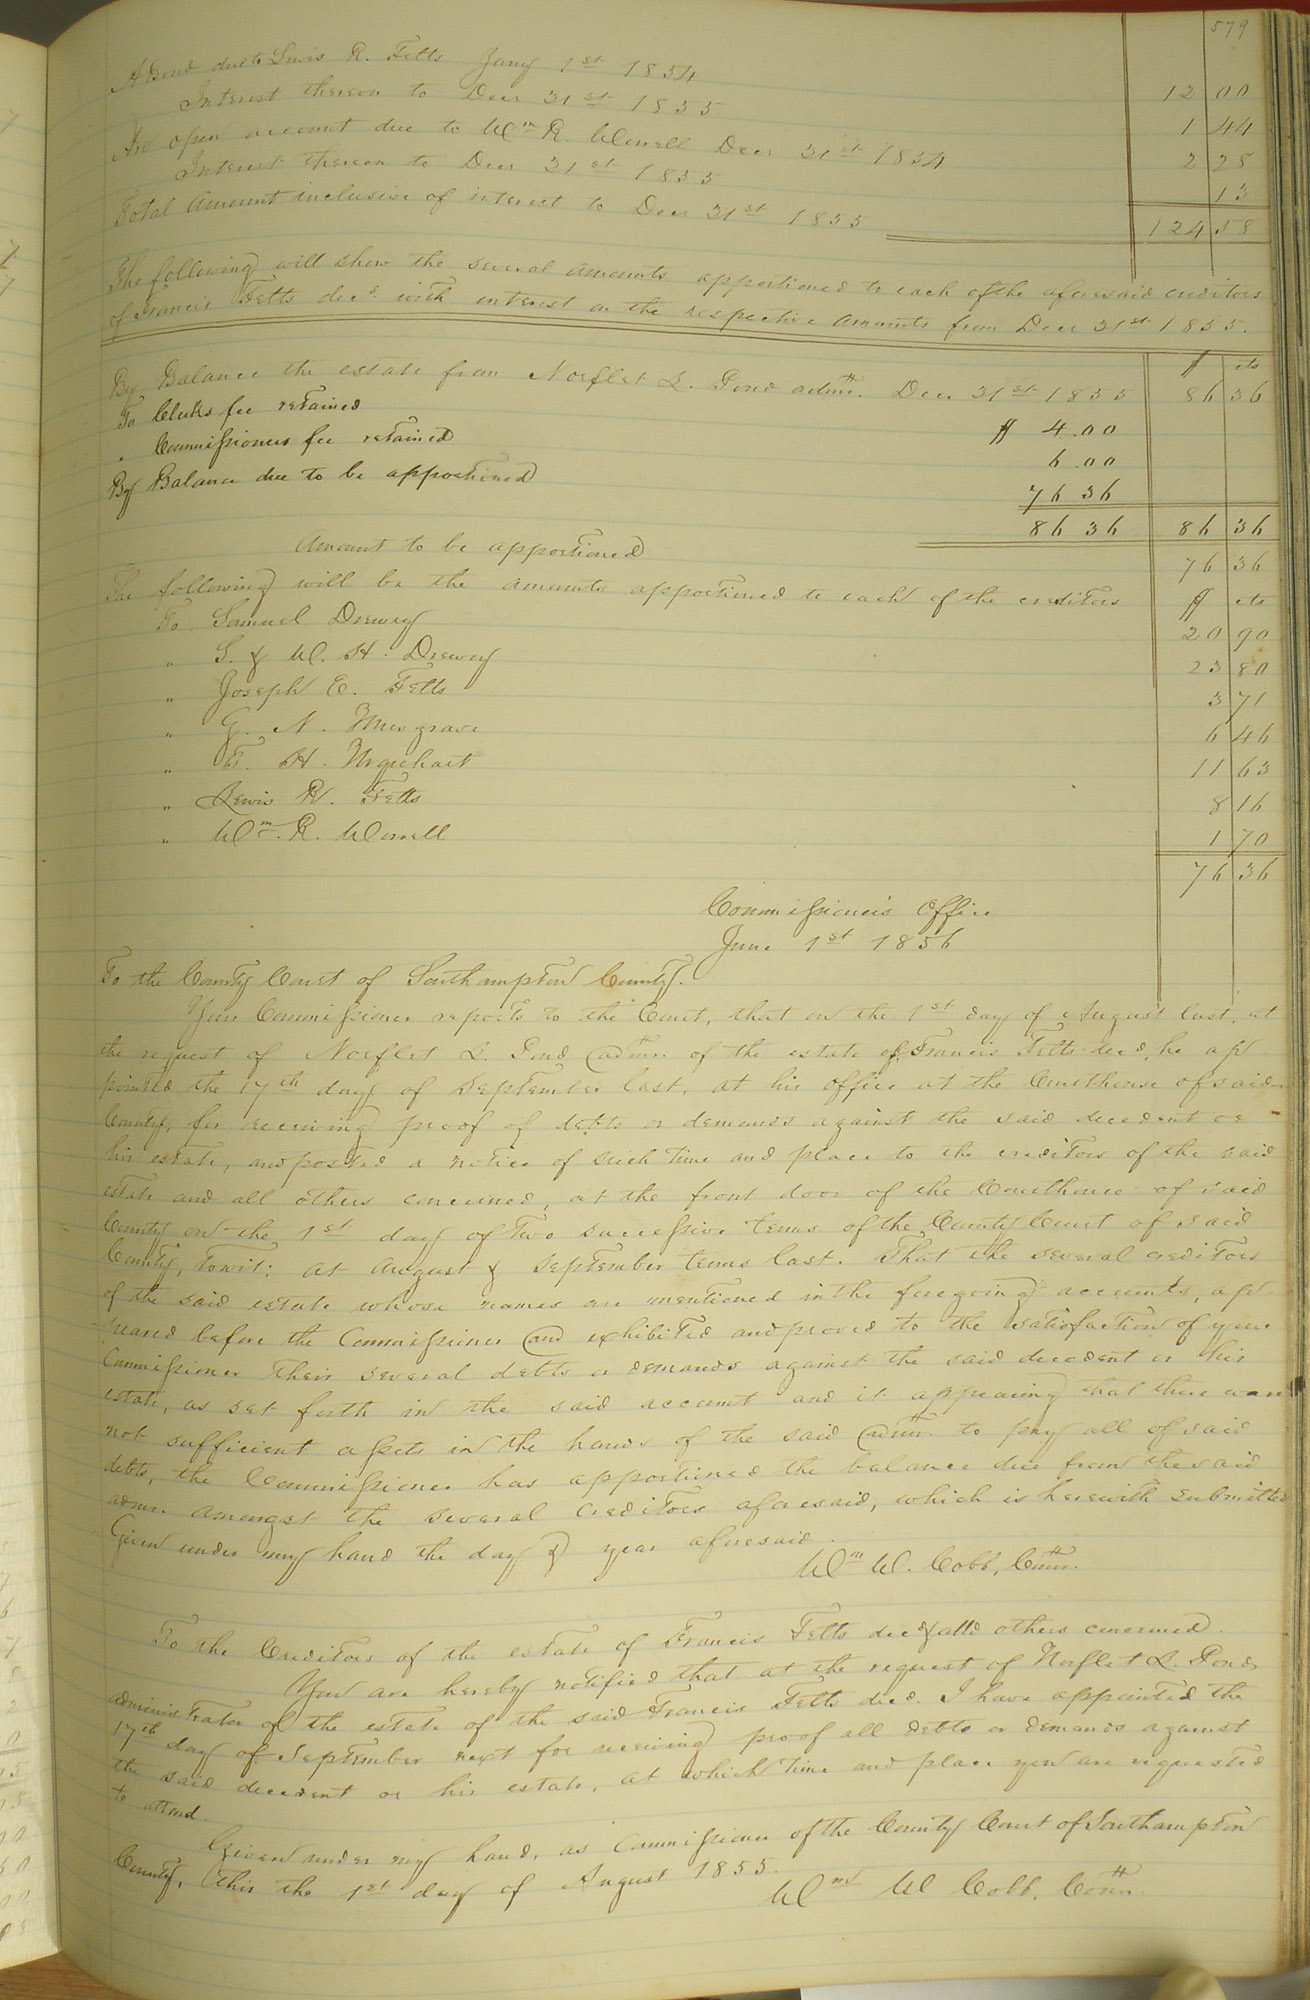 579
A Bond due to Lewis R. Felts Jany 1st 1854 12 00
Interest thereon to Decr 31st 1855 1 44
An open account due to Wm R. Worrell Decr 31st 1854 2 28
Interest thereon to Decr 31st 1855 13
Total Amount inclusive of interest to Decr 31st 1855 124 58
The following will show the several amounts apportioned to each of the aforesaid creditors
of Francis Felts decd. with interest on the respective amounts from Decr 31st 1855.
$ cts
By Balance the estate from Norflet L. Pond admr. Decr 31st 1855 86 36
To Clerks fee retained $ 4.00
" Commissioners fee retained 6.00
By Balance due to be apportioned 76 36
86 36 86 36
Amount to be apportioned 76 36
The following will be the amounts apportioned to each of the creditors $ cts
To Samuel Drewry 20 90
" S. & W. H. Drewry 23 80
" Joseph E. Felts 3 71
" G. N. Musgrave 6 46
" E. H. Urquhart 11 63
" Lewis R. Felts 8 16
" Wm. R. Worrell 1 70
76 36
Commissioner's Office
June 1st 1856
To the County Court of Southampton County.
Your Commissioner reports to the Court, that on the 1st day of August last, at
the request of Norflet L. Pond admr. of the estate of Francis Felts decd, he ap
pointed the 17th day of September last, at his office at the Courthouse of said
County, for receiving proof of debts or demands against the said decedent or
his estate, and posted a notice of such time and place to the creditors of the said
estate and all others concerned, at the front door of the Courthouse of said
County on the 1st day of two successive terms of the County Court of said
County, Towit: at August & September terms last. That the several creditors
of the said estate whose names are mentioned in the foregoing accounts, ap
peared before the Commissioner and exhibited and proved to the satisfaction of your
Commissioner their several debts or demands against the said decedent or his
estate, as set forth in the said account and it appearing that there were
not sufficient assets in the hands of the said admr. to pay all of said
debts, the Commissioner has apportioned the balance due from the said
admr. amongst the several creditors aforesaid, which is herewith submitted
Given under my hand the day & year aforesaid.
Wm W. Cobb, Comr.
To the Creditors of the estate of Francis Felts decd & all others concerned.
You are hereby notified that at the request of Norflet L. Pond
administrator of the estate of the said Francis Felts decd. I have appointed the
17th day of September next for receiving proof all debts or demands against
the said decedent or his estate, at which time and place you are requested
to attend.
Given under my hand, as Commissioner of the County Court of Southampton
County, this the 1st day of August 1855.
Wm W Cobb, Comr.